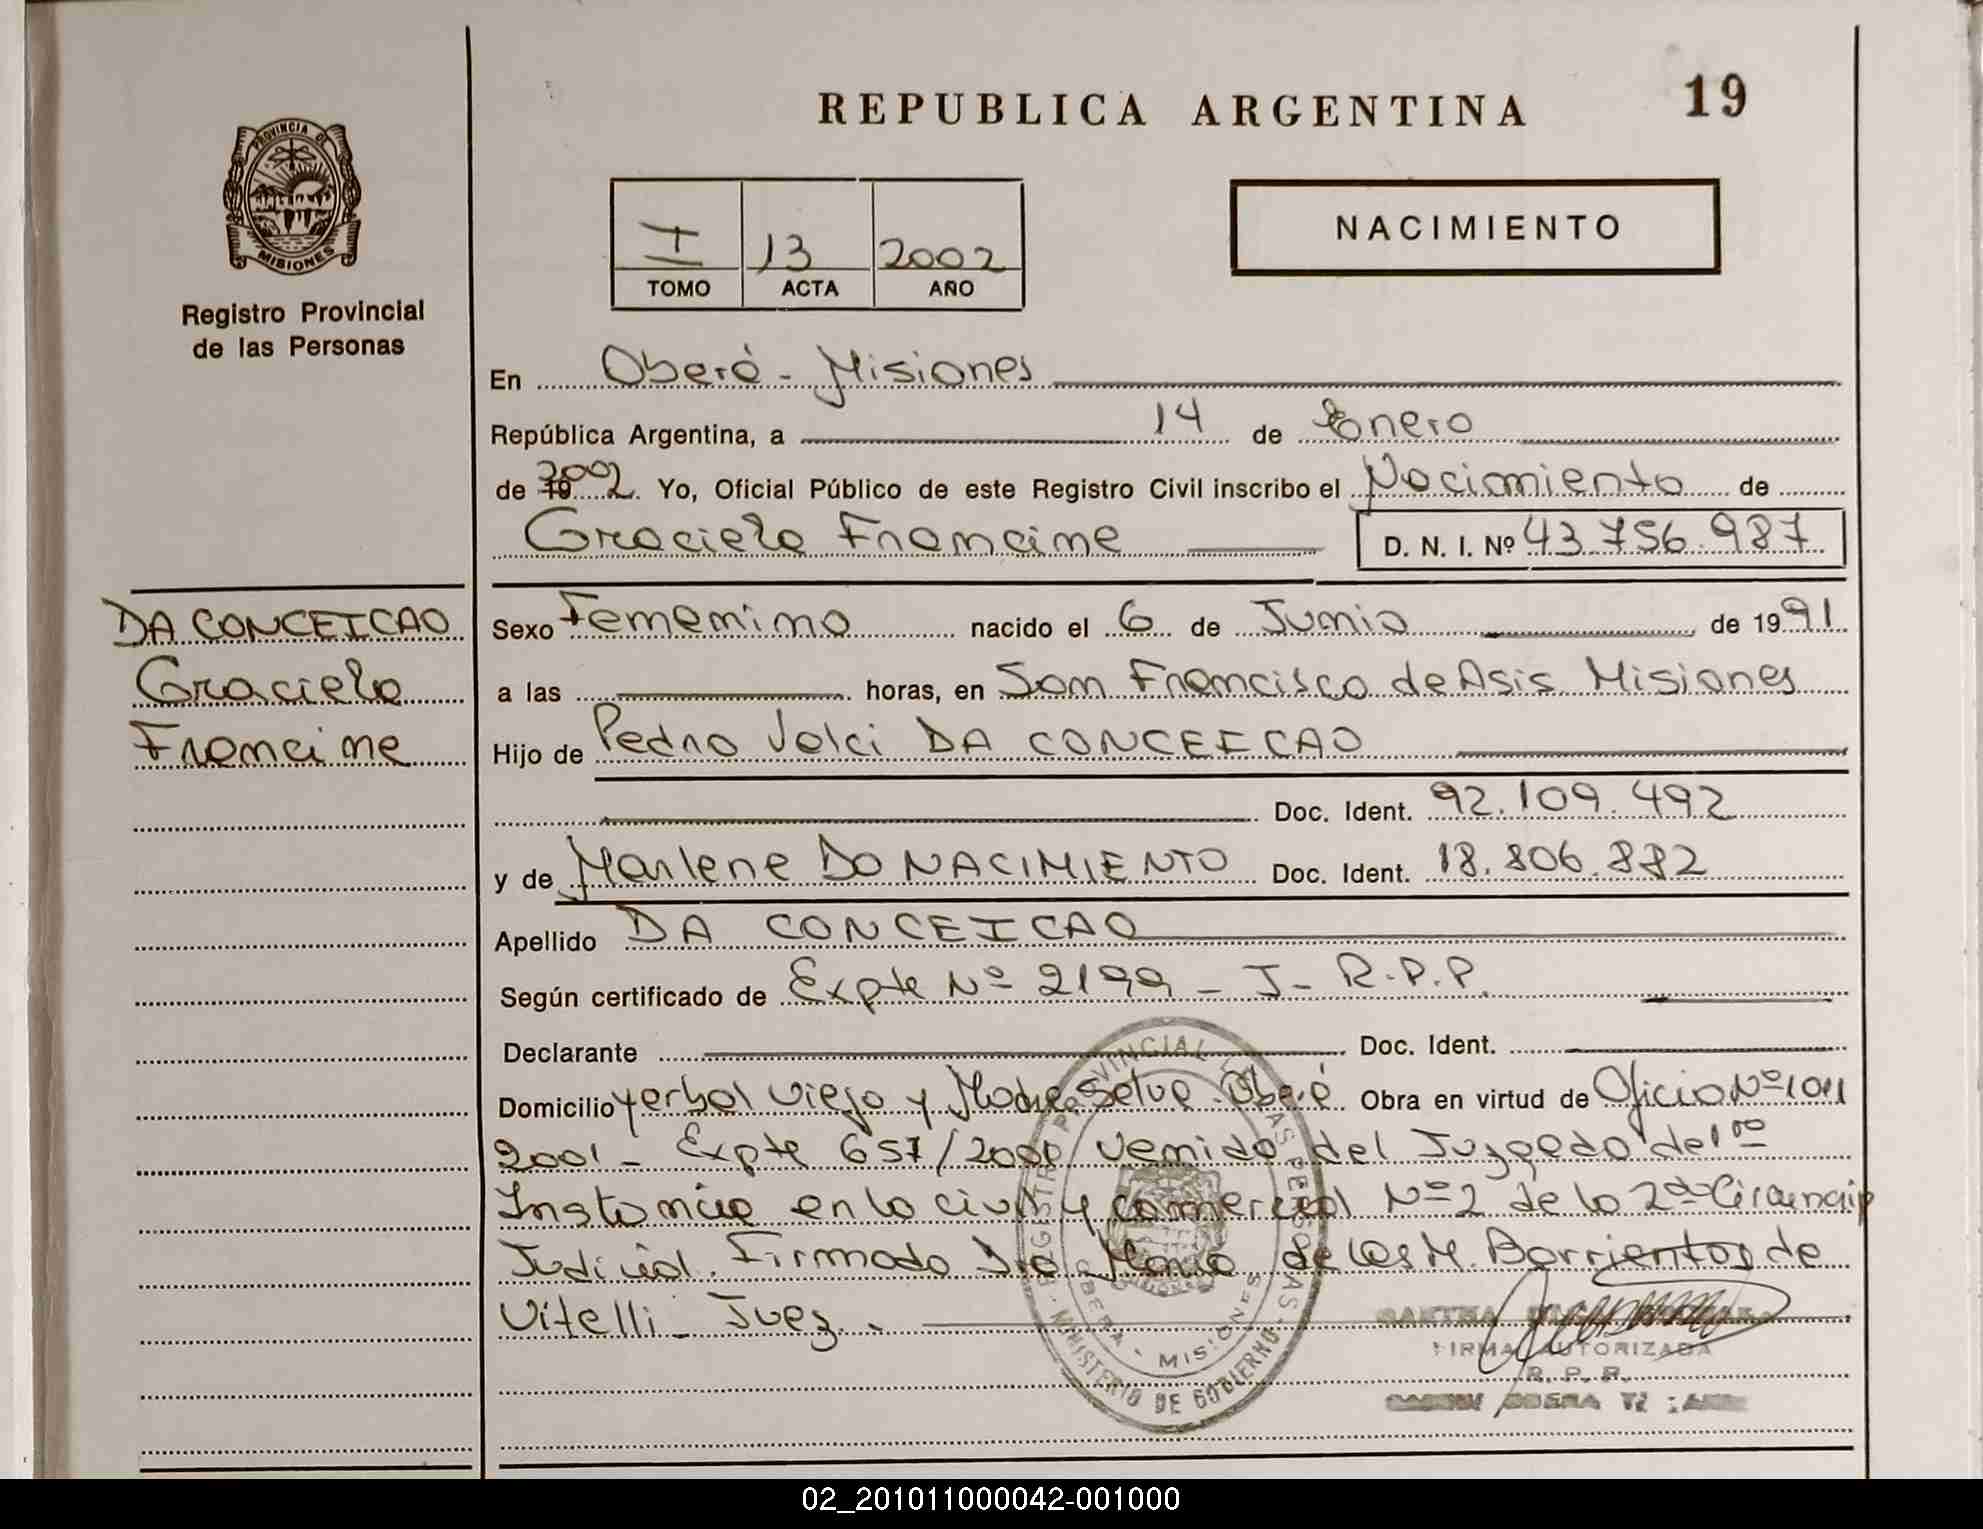 REPUBLICA ARGENTINA
19
PROVINCIA DE
MISIONES
Registro Provincial
de las Personas
I 13 2002
TOMO ACTA AÑO
NACIMIENTO
En Oberá - Misiones
República Argentina, a 14 de Enero
de 19 2002. Yo, Oficial Público de este Registro Civil inscribo el Nacimiento de
Graciela Francine D. N. I. Nº 43.756.987
DA CONCEICAO
Graciela
Francine
Sexo Femenino nacido el 6 de Junio de 1991
a las horas, en San Francisco de Asis Misiones
Hijo de Pedro Valci DA CONCEICAO
Doc. Ident. 92.109.492
y de Marlene DO NACIMIENTO Doc. Ident. 18.806.882
Apellido DA CONCEICAO
Según certificado de Expte Nº 2199 - J - R.P.P.
Declarante Doc. Ident.
Domicilio Yerbal Viejo y Madre Selva Oberá Obra en virtud de Oficio Nº 1011
2001 - Expte 657/2000 venido del Juzgado de 1ra
Instancia en lo civil y comercial Nº 2 de la 2da Circunscip
Judicial. Firmado Dra Maria de las M. Barrientos de
Vitelli - Juez.
REGISTRO PROVINCIAL DE LAS PERSONAS
OBERA - MISIONES
MINISTERIO DE GOBIERNO
FIRMA AUTORIZADA
R. P. P.
02_201011000042-001000